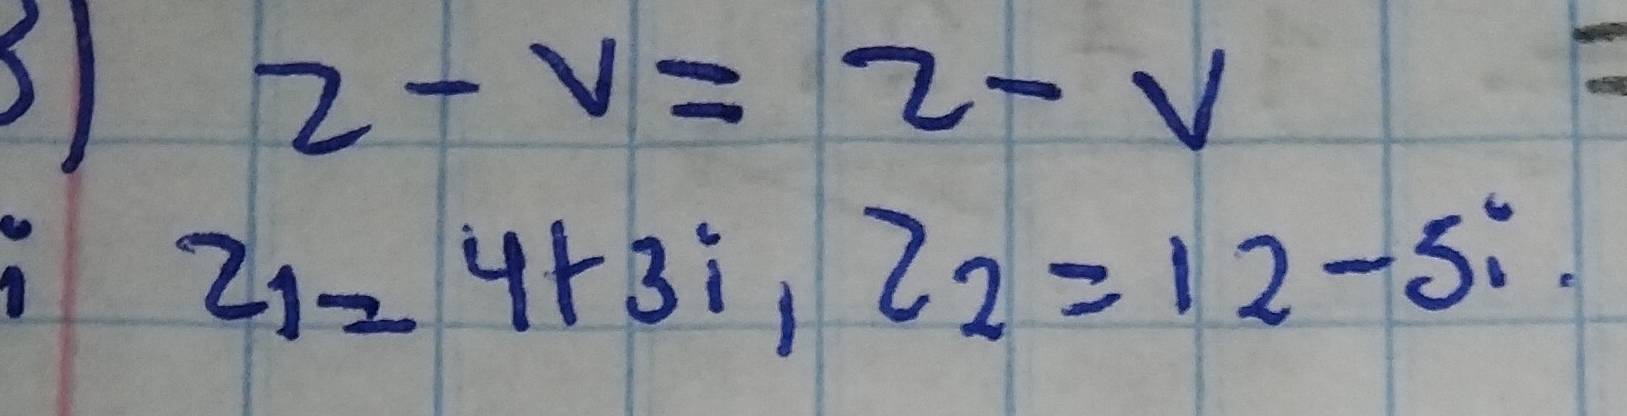 3) z - v = z - v =
i z1 = 4+3i, z2 = 12-5i.